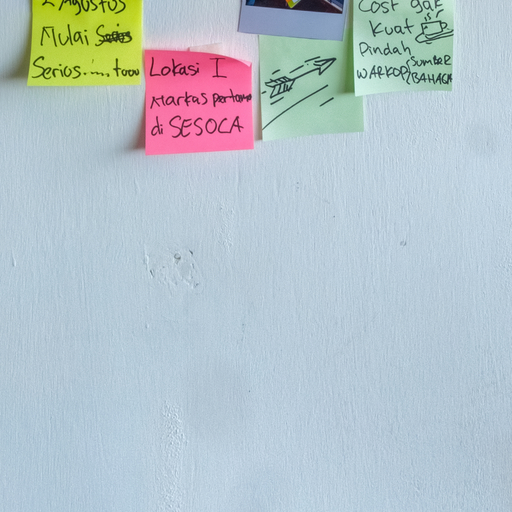 2 Agustus
Mulai
Serios......
Lokasi I
Markas
di SESOCA
Cost gak
Kuat
Pindah
WARKOP
SumbeR
BAHAGIA